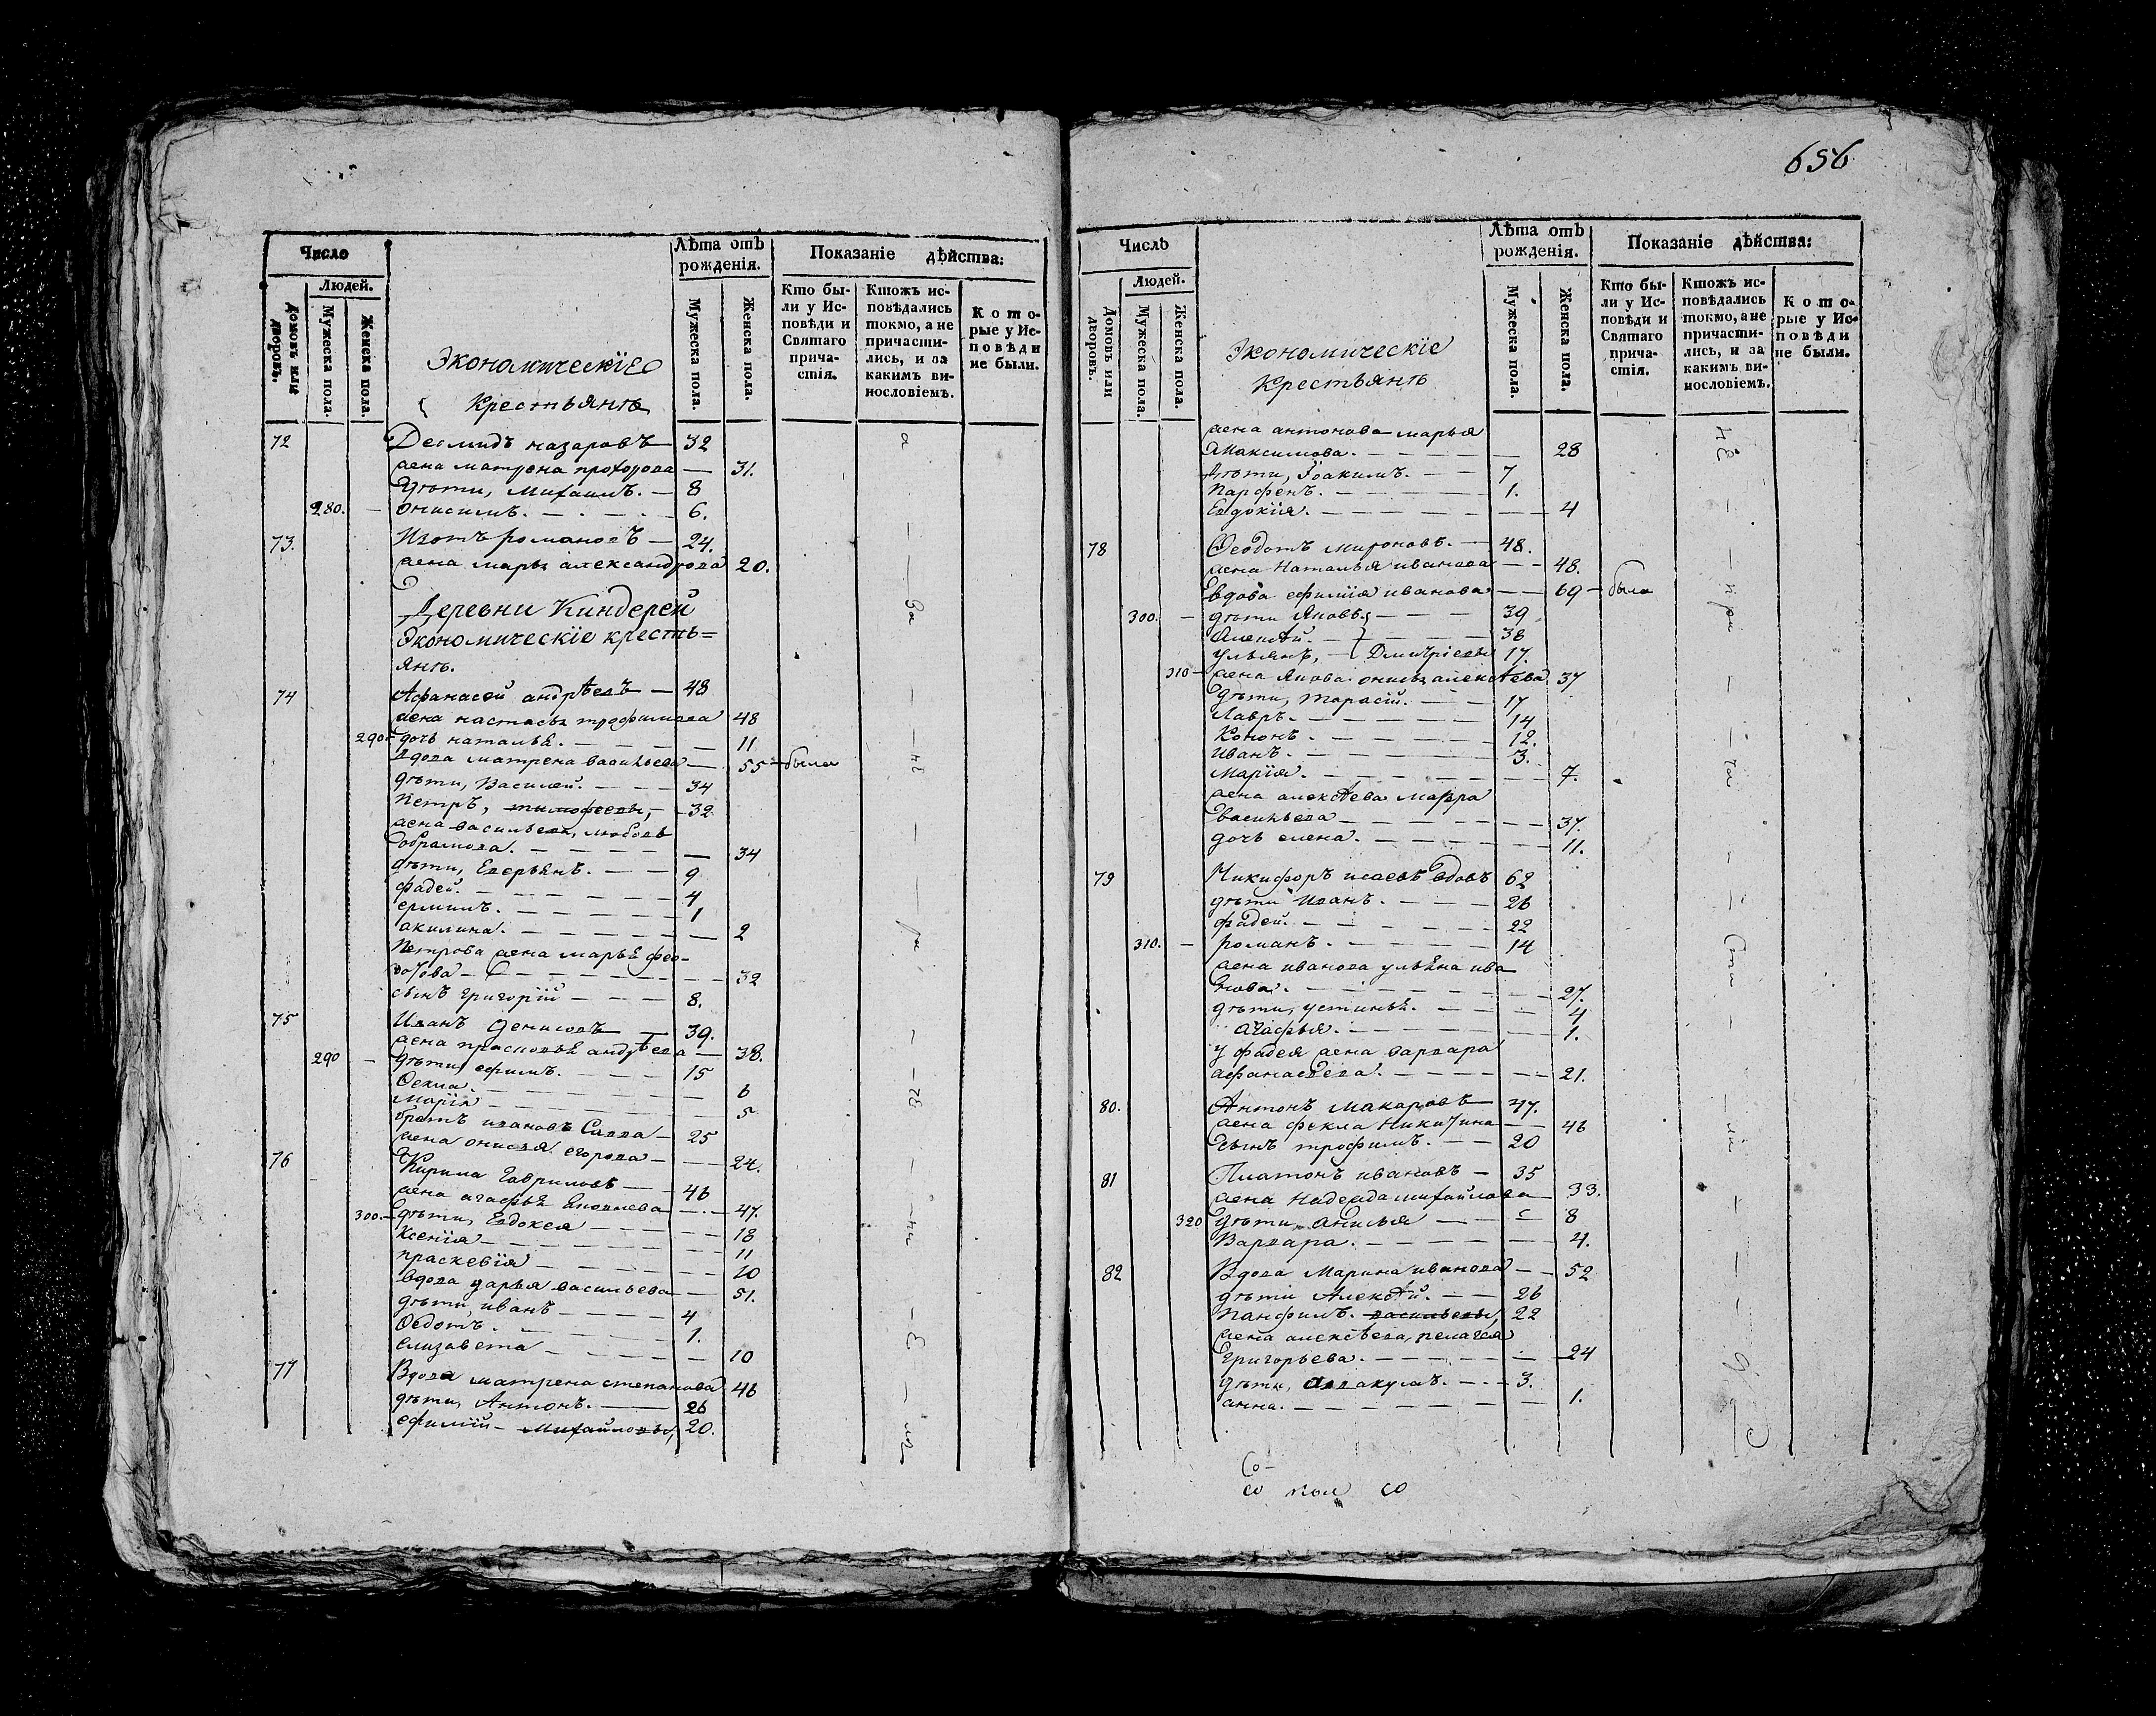 Число
Людей.
Домовъ или дворовъ.
Мужеска пола.
Женска пола.
Экономическіе
Крестьянѣ
Лѣта отъ рожденія.
Мужеска пола.
Женска пола.
Показаніе дѣйства:
Кто бы-
ли у Ис-
повѣди и
Святаго
прича-
стія.
Ктожъ ис-
повѣдались
токмо, а не
причасти-
лись, и за
какимъ ви-
нословіемъ.
Кото-
рые у Ис-
повѣди
не были.
72 Деомидъ назаровъ — 32
жена матрона прохорова — 31.
дѣти, Михаилъ. — 8
280. — онисимъ. — 6.
73. Изотъ романовъ — 24.
жена марья александрова 20.
Деревни Киндерей
Экономическіе кресть=
янѣ.
74 Афанасей андрѣевъ — 48
жена настасья трофимова 48
290 — дочь наталья. — 11
вдова матрена васильева — 55 — была
дѣти, Василей. — 34
Петръ, тимофеевы, — 32
жена васильева, любовь
абрамова. — 34
дѣти, Еверьянъ. — 9
фадей. — 4
ермилъ. — 1
акилина. — 2
Петрова жена марья фео-
дотова — 32
сынъ григорій — 8.
75 Иванъ денисовъ — 39.
жена прасковья андрѣева — 38.
290 — дѣти, ефимъ. — 15
Ѳекла. — 6
Марія — 5
братъ ивановъ Савва — 25
жена онисья егорова — 24.
76 Кирила Гавриловъ — 46
жена агафья Яковлева — 47.
300. — дѣти, Евдокея — 18
Ксенія — 11
праскевія — 10
вдова дарья васильева — 51.
дѣти, иванъ — 4
Ѳедотъ. — 1.
елизавета — 10
77 Вдова матрена степанова 46
дѣти, Антонъ. — 26
ефимій — Михайловы, 20.
656
Числь
Людей.
Домовъ или дворовъ.
Мужеска пола.
Женска пола.
Экономическіе
Крестьянѣ
Лѣта отъ рожденія.
Мужеска пола.
Женска пола.
Показаніе дѣйства:
Кто бы-
ли у Ис-
повѣди и
Святаго
прича-
стія.
Ктожъ ис-
повѣдались
токмо, а не
причасти-
лись, и за
какимъ ви-
нословіемъ.
Кото-
рые у Ис-
повѣди
не были.
жена антонова марья
Максимова. — 28
дѣти, Іоакимъ. — 7
Парфенъ. — 1.
Евдокія. — 4
78 Ѳеодотъ мироновъ. — 48.
жена Наталья иванова — 48.
вдова ефимія иванова — 69 — была
300. — дѣти Яковъ — 39
Алексѣй. — 38
ульянъ, — Дмитріевы 17.
310 — жена Якова онисья алексѣева 37
дѣти, Тарасій. — 17
Лавръ. — 14
Кононъ — 12.
иванъ — 3.
Марія. — 7.
жена алексѣева Мавра
васильева — 37.
дочь елена. — 11.
79 Никифоръ исаевъ вдовъ 62
дѣти Иванъ. — 26
фадей. — 22
310. — романъ. — 14
жена иванова ульяна ива
нова. — 27.
дѣти, устинья. — 4
Агафья. — 1.
у фадея жена варвара
афанасьева. — 21.
80. Антонъ макаровъ — 47.
жена фекла Никитина — 46
сынъ трофимъ. — 20
81 Платонъ ивановъ — 35
жена Надежда михайлова — 33.
320 дѣти, Анисья — 8
Варвара. — 4.
82 Вдова Марина иванова — 52
дѣти Алексѣй. — 26
Панфилъ. васильевы, 22
жена алексѣева, пелагея
Григорьева. — 24
дѣти, Аввакумъ. — 3.
анна. — 1.